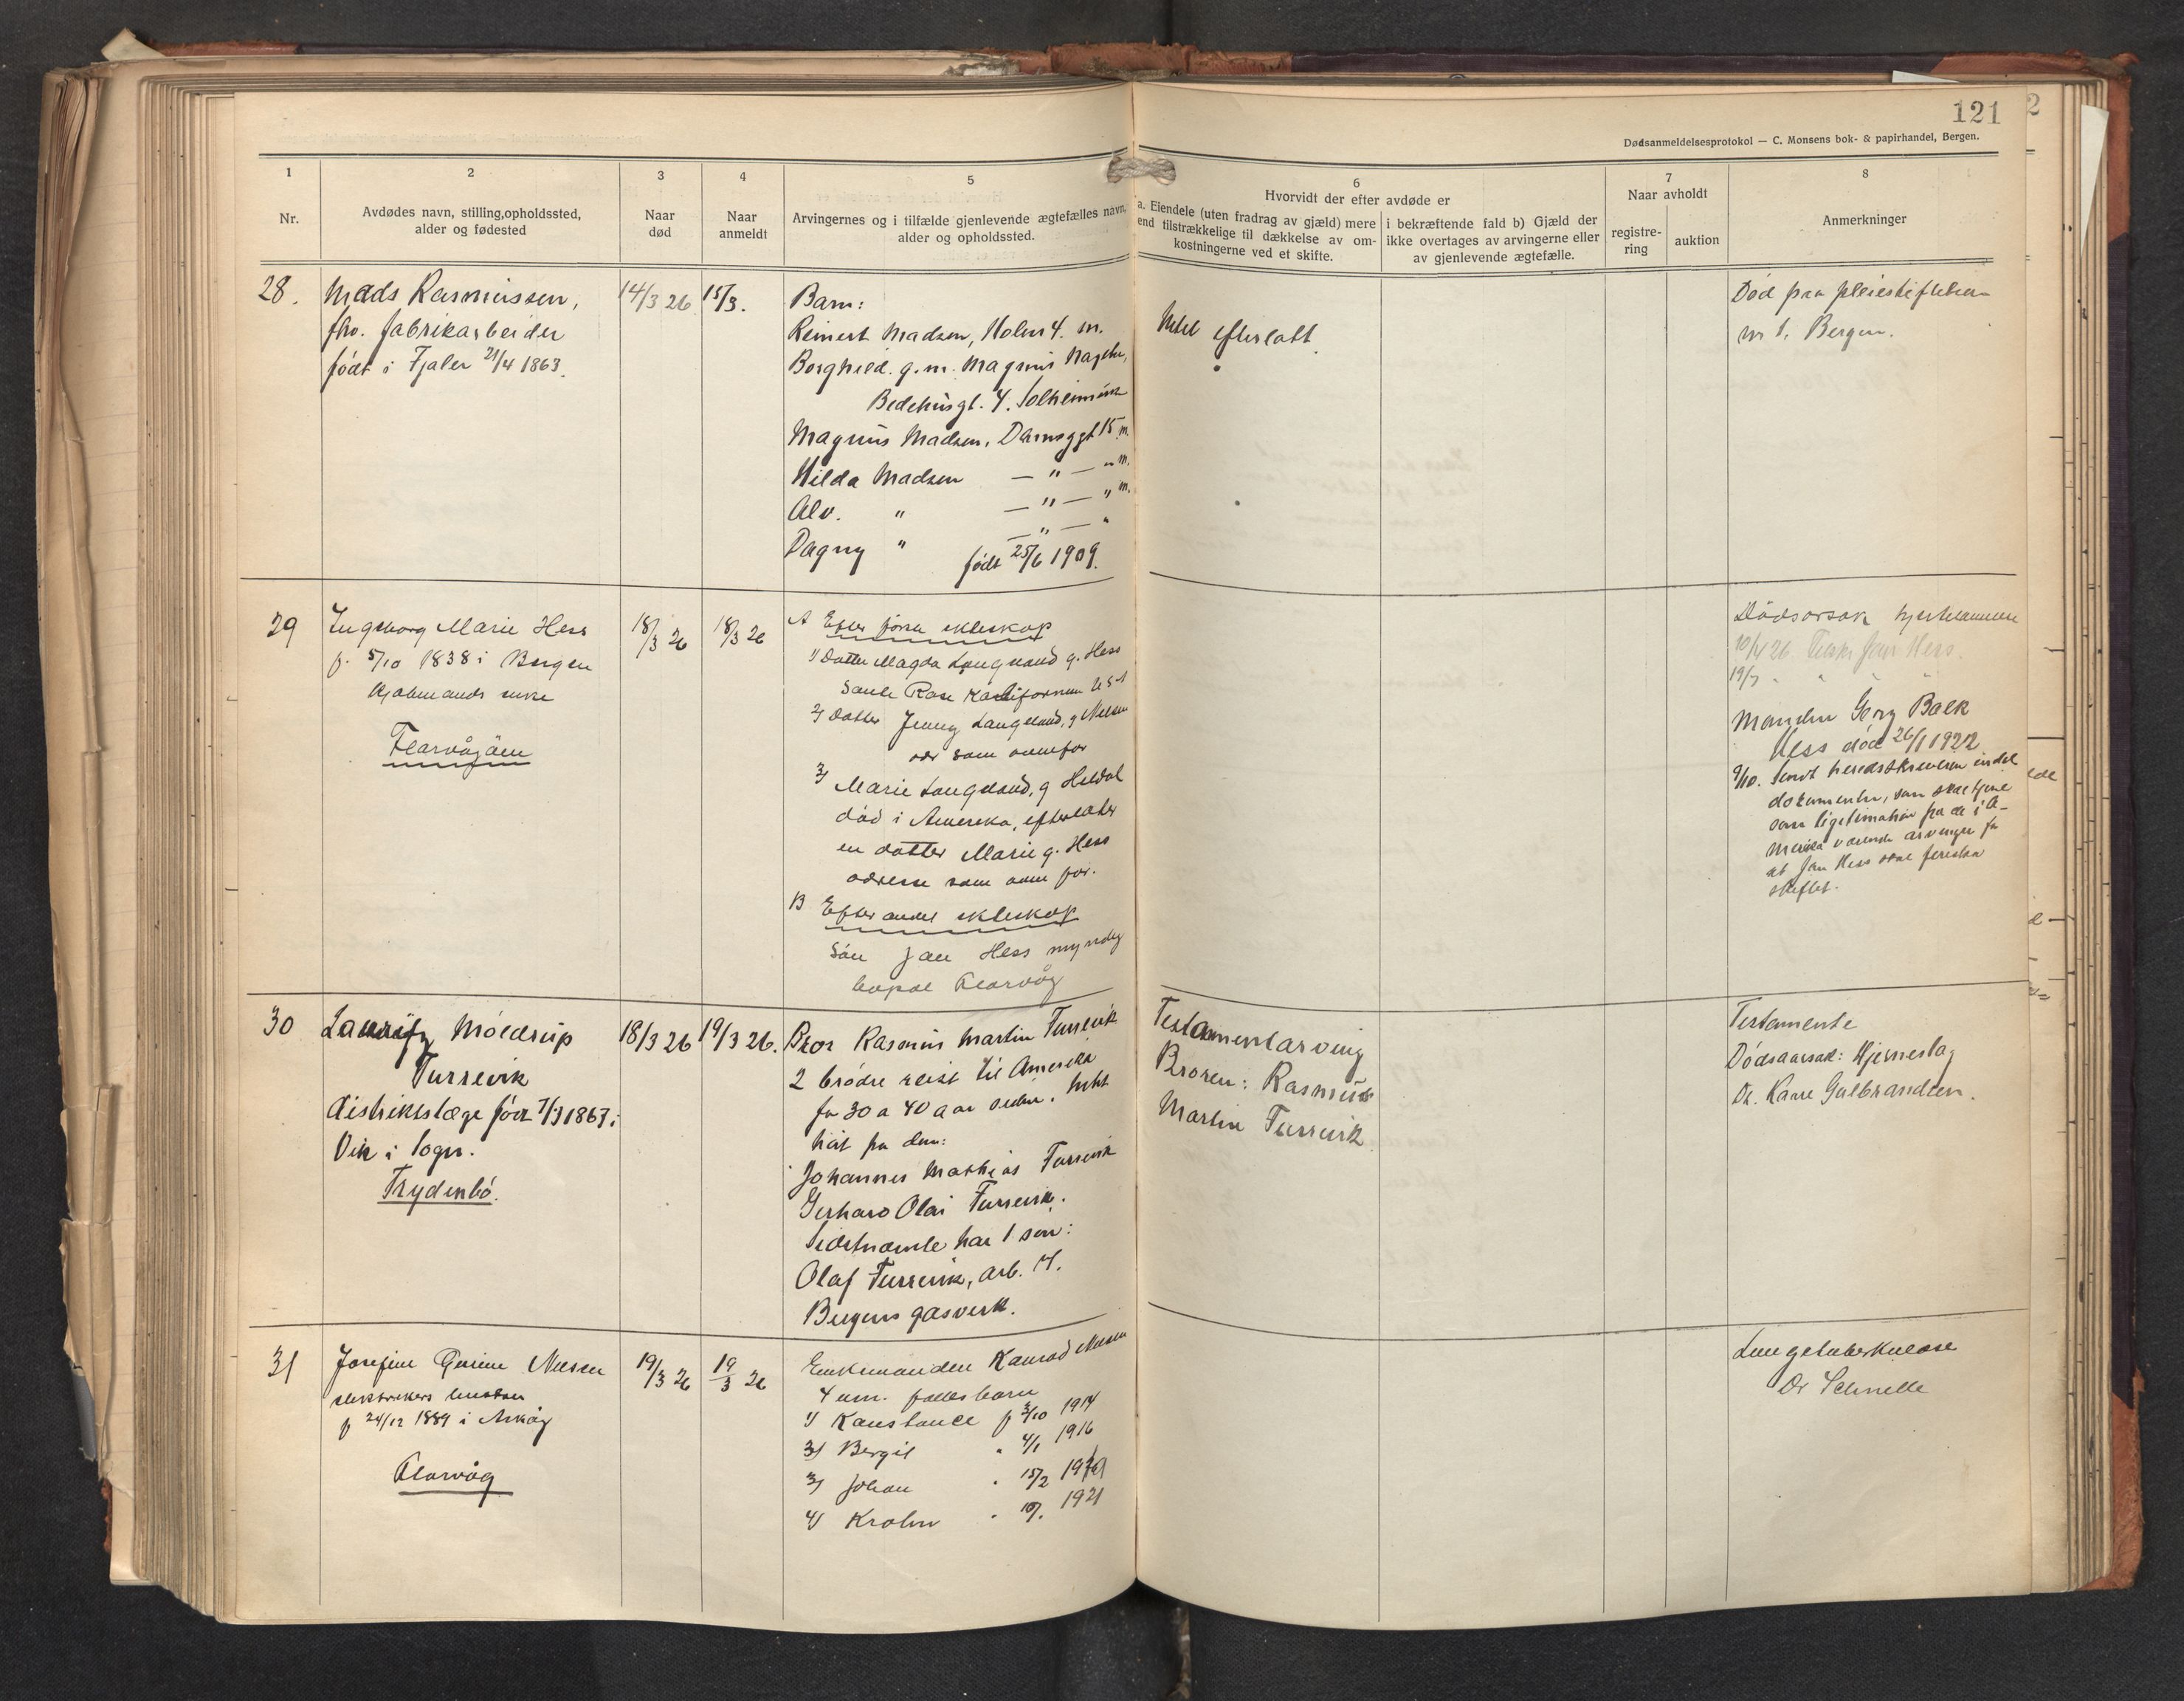 121
Dødsanmeldelsesprotokol — C. Monsens bok- & papirhandel, Bergen.
1
2
3
4
5
6
7
8
Nr.
Avdødes navn, stilling, opholdssted,
alder og fødested
Naar
død
Naar
anmeldt
Arvingernes og i tilfælde gjenlevende ægtefælles navn,
alder og opholdssted.
Hvorvidt der efter avdøde er
a. Eiendele (uten fradrag av gjæld) mere
end tilstrækkelige til dækkelse av om-
kostningerne ved et skifte.
i bekræftende fald b) Gjæld der
ikke overtages av arvingerne eller
av gjenlevende ægtefælle.
Naar avholdt
registre-
ring
auktion
Anmerkninger
28.
Mads Rasmussen,
fhv. fabrikarbeider
født i Fjaler 21/4 1863.
14/3 26
15/3.
Barn:
Reinert Madsen, Holm 4. m.
Borghild. g. m. Magnus
Bedehusgt. 4. Solheimsvik
Magnus Madsen, Damsggt 15 m.
Hilda Madsen — " — " m.
Alv. " — " — " m.
Dagny " — " — "
født 25/6 1909.
Intet efterlatt.
Død paa pleiestiftelsen
nr 1. Bergen.
29
Ingeborg Marie Hess
f. 5/10 1838 i Bergen
enke
Flarvågøen
18/3 26
18/3 26
A Efter første ekteskap
1) Datter Magda Langeland g. Hess
Rose USA
2) Datter Jenny Langeland, g Nelsen
adr som ovenfor
3) Marie Langeland, g Heldal
død i Amerika, efterlater
en datter Marie g. Hess
adresse som oven for.
B Efter andet ekteskap
Søn Jan Hess myndig
bopæl Flarvåg
Dødsorsak
10/4 26. Jan Hess.
19/7 " " "
Manden Georg Balk
Hess død 26/1 1922
9/10. Sendt herredskriveren endel
dokumenter, som skal tjene
som legitimation fra de i A-
merika værende arvinger for
at Jan Hess skal forestaa
skiftet.
30
Lauritz Møldrup
Turrevik
distriktslæge født 7/3 1863 i
Vik i Sogn.
Frydenbø.
18/3 26
19/3 26.
Bror Rasmus Martin Turrevik
2 brødre reist til Amerika
for 30 a 40 aar siden. Intet
hørt fra dem:
Johannes Mathias Turrevik
Gerhard Olai Turrevik.
Sidstnævnte har 1 søn:
Olaf Turrevik, arb. v.
Bergens gasverk.
Testamentarving
Broren: Rasmus
Martin Turrevik
Testamente
Dødsaarsak: Hjerneslag
Dr. Kaare Gulbrandsen.
31
Josefine Gurine Nilsen
hustru
f 24/12 1889 i Askøy
Flarvåg
19/3 26
19/3 26
Enkemanden Konrad Nilsen
4 um. fællesbarn
1) Konstance f 3/10 1914
2) Bergit " 4/1 1916
3) Johan " 15/2 1919
4) Krohn " 1921
Lungetuberkulose
Dr Schnelle